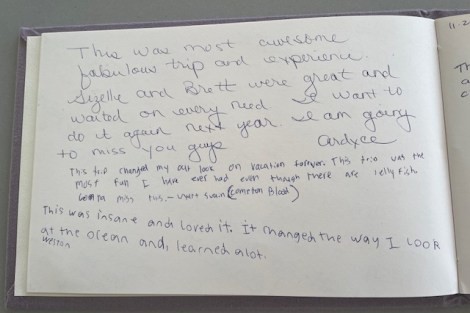 This was most awesome
fabulous trip and experience.
Gizelle and Brett were great and
waited on every need. I want to
do it again next year. I am going
to miss you guys Cardyce
This trip changed my out look on vacation forever. This trip was the
most fun I have ever had even though there are Jelly fish.
Gonna miss this. - Swain (Cameron Blood)
This was insane and loved it. It changed the way I LOOK
at the ocean and, learned alot.
Weston
11-2
Th
a
c